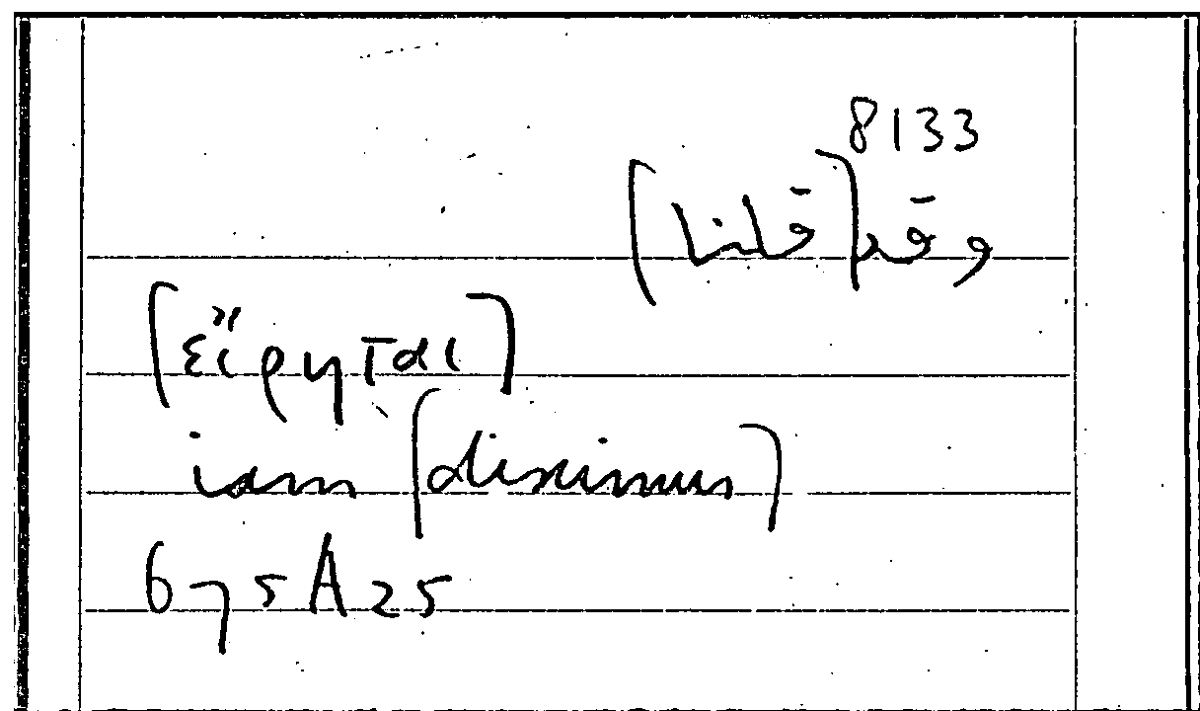 8133
وقد [قلنا]
[εἴρηται]
iam [diximus]
675A25